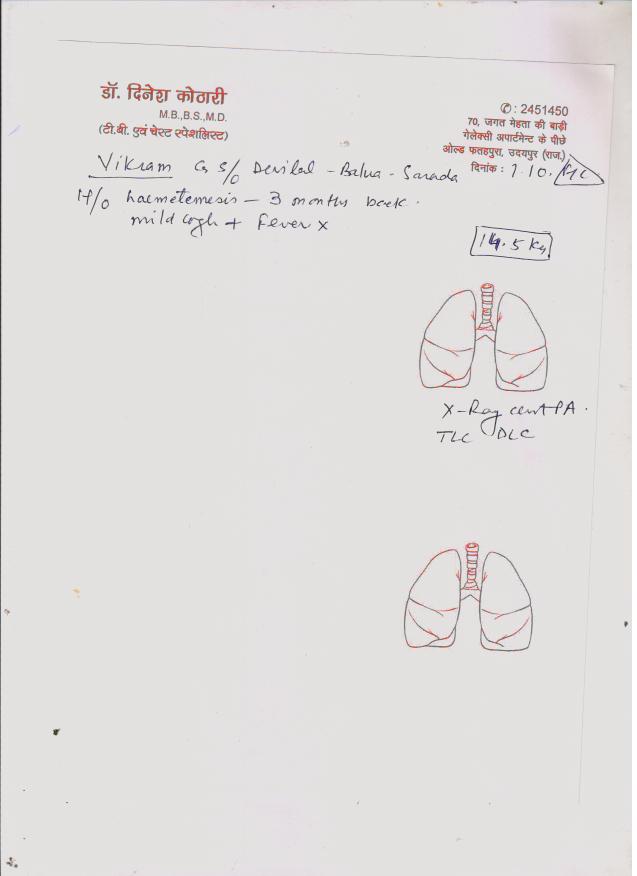 डॉ. दिनेश कोठारी
M.B.,B.S.,M.D.
(टी.बी. एवं चेस्ट स्पेशलिस्ट)
✆: 2451450
70, जगत मेहता की बाड़ी
गेलेक्सी अपार्टमेन्ट के पीछे
ओल्ड फतहपुरा, उदयपुर (राज.)
दिनांक : 1.10.
Vikram S/o Devilal - Balua - Sarada
H/o haemetemesis - 3 months back.
mild cogh + Fever x
14.5 Kg
X-Ray PA.
TLC DLC